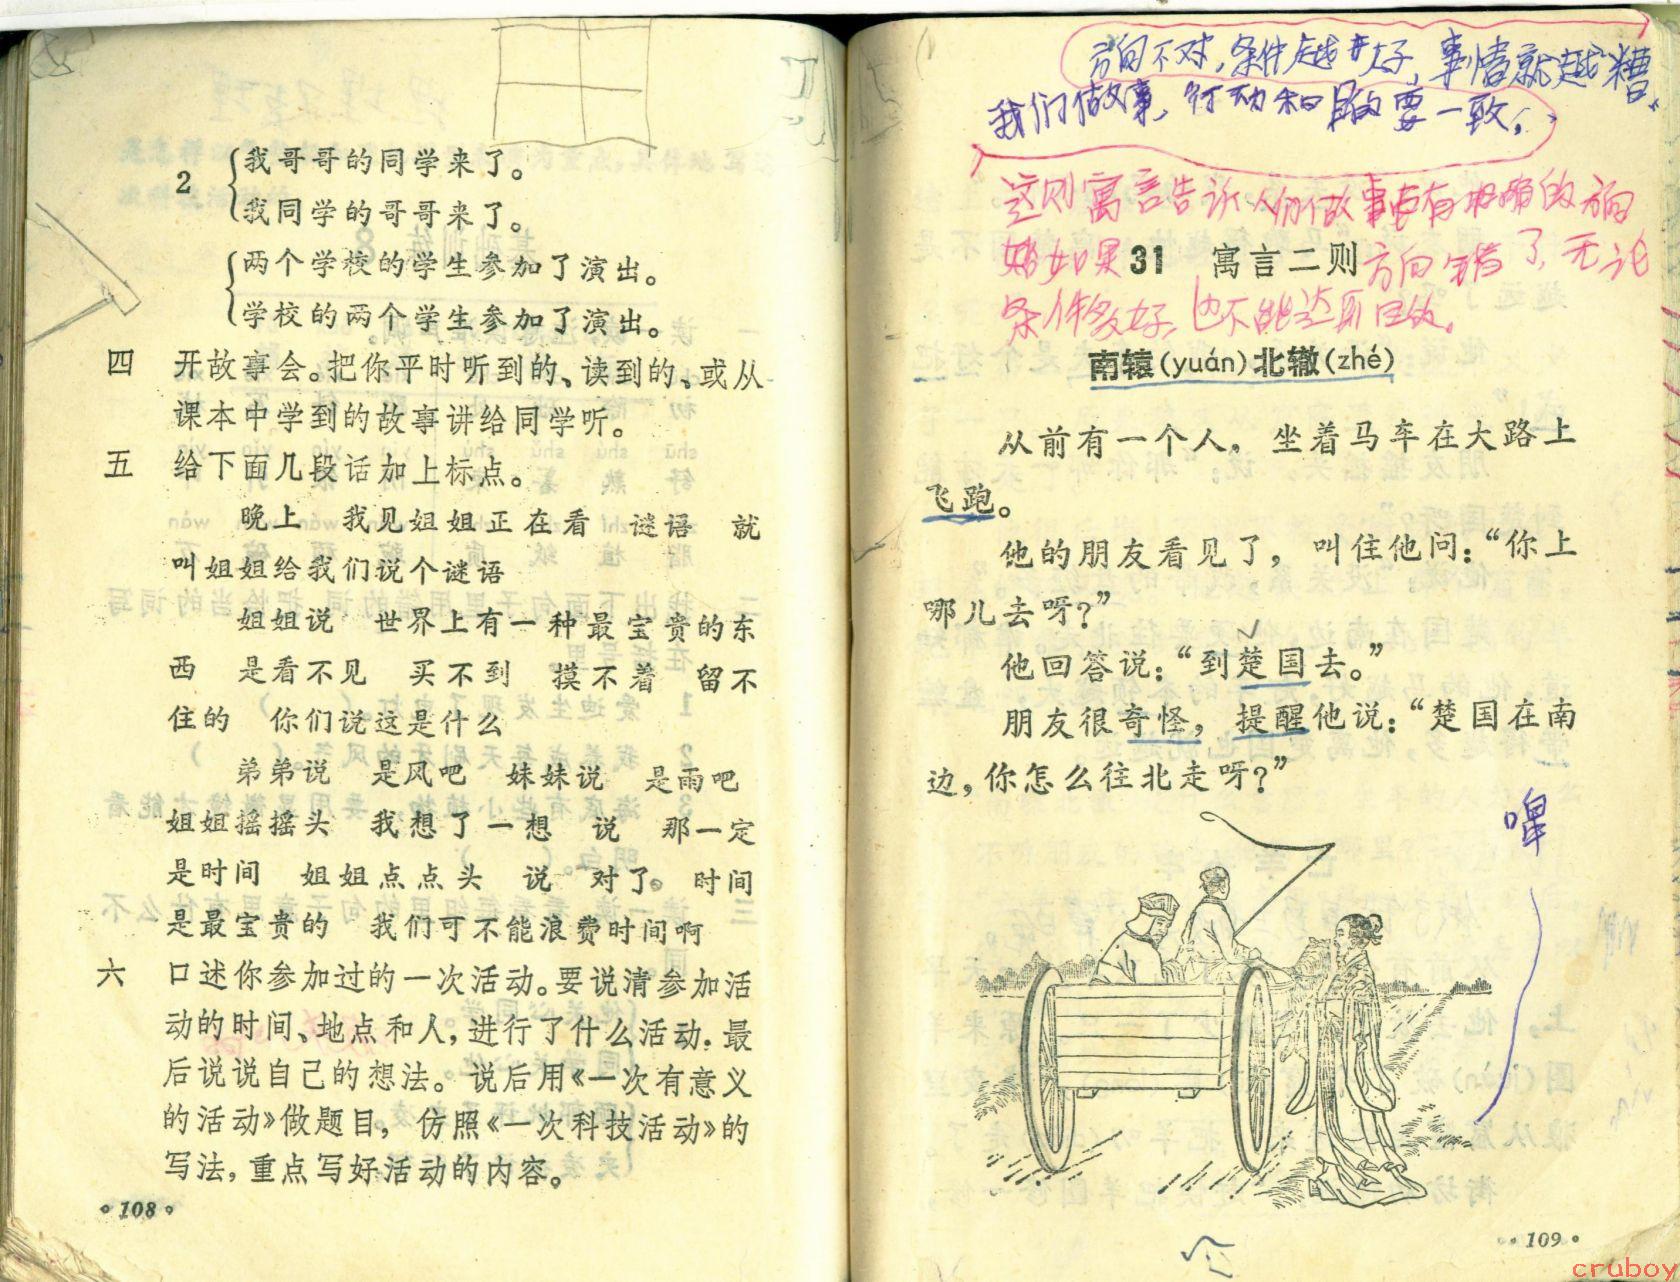 2
我哥哥的同学来了。
我同学的哥哥来了。
两个学校的学生参加了演出。
学校的两个学生参加了演出。
四 开故事会。把你平时听到的、读到的、或从
课本中学到的故事讲给同学听。
五 给下面几段话加上标点。
晚上 我见姐姐正在看 谜语 就
叫姐姐给我们说个谜语
姐姐说 世界上有一种最宝贵的东
西 是看不见 买不到 摸不着 留不
住的 你们说这是什么
弟弟说 是风吧 妹妹说 是雨吧
姐姐摇摇头 我想了一想 说 那一定
是时间 姐姐点点头 说 对了。 时间
是最宝贵的 我们可不能浪费时间啊
六 口述你参加过的一次活动。要说清参加活
动的时间、地点和人，进行了什么活动。最
后说说自己的想法。说后用《一次有意义
的活动》做题目， 仿照《一次科技活动》的
写法，重点写好活动的内容。
·108·
方向不对，条件越好，事情就越糟。
我们做故事，行动和目的要一致，
这则寓言告诉人们做故事要有准确的方向
如果方向错了，无论
条件多好，也不能达到目的。
31 寓言二则
南辕(yuán)北辙(zhé)
从前有一个人， 坐着马车在大路上
飞跑。
他的朋友看见了， 叫住他问：“你上
哪儿去呀？”
他回答说：“到楚国去。”
朋友很奇怪， 提醒他说：“楚国在南
边，你怎么往北走呀？”
·109·
cruboy